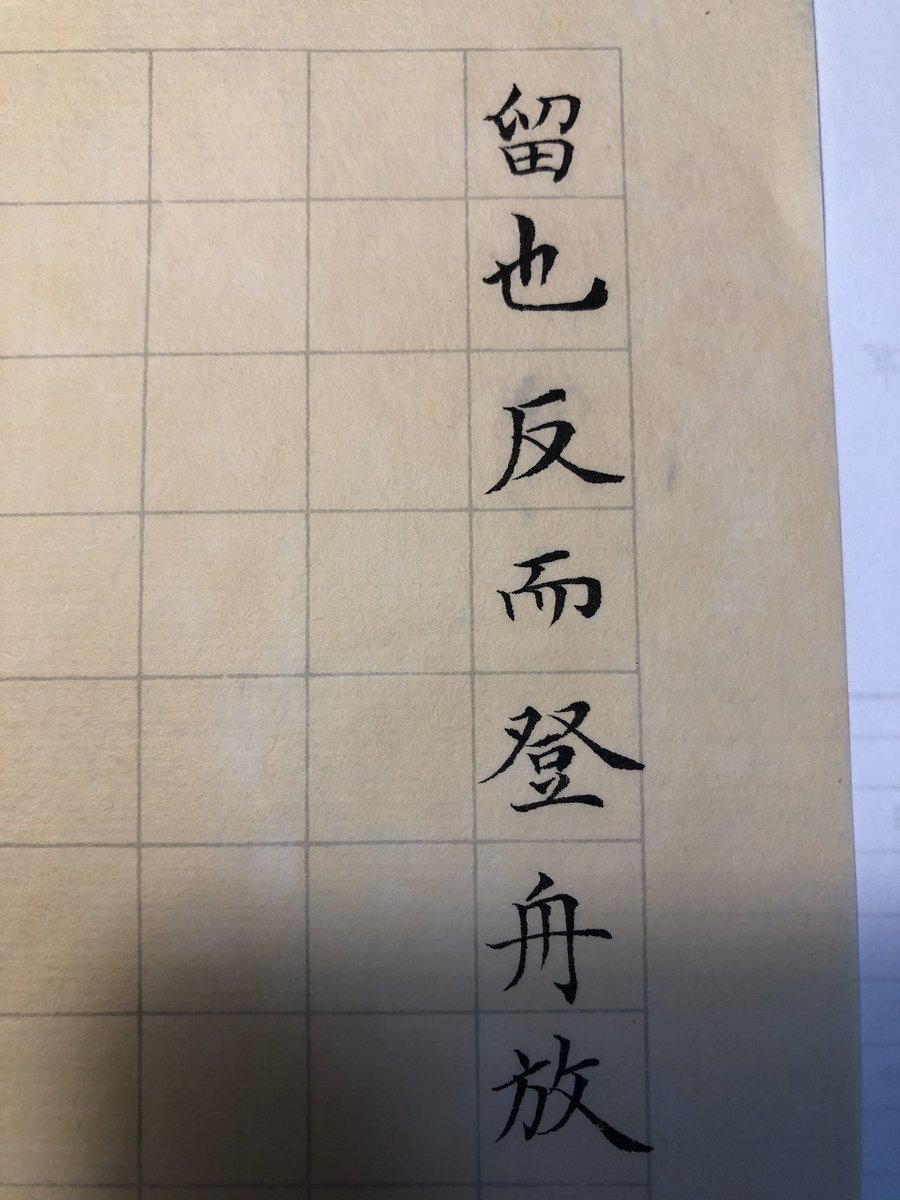 留也反而登舟放